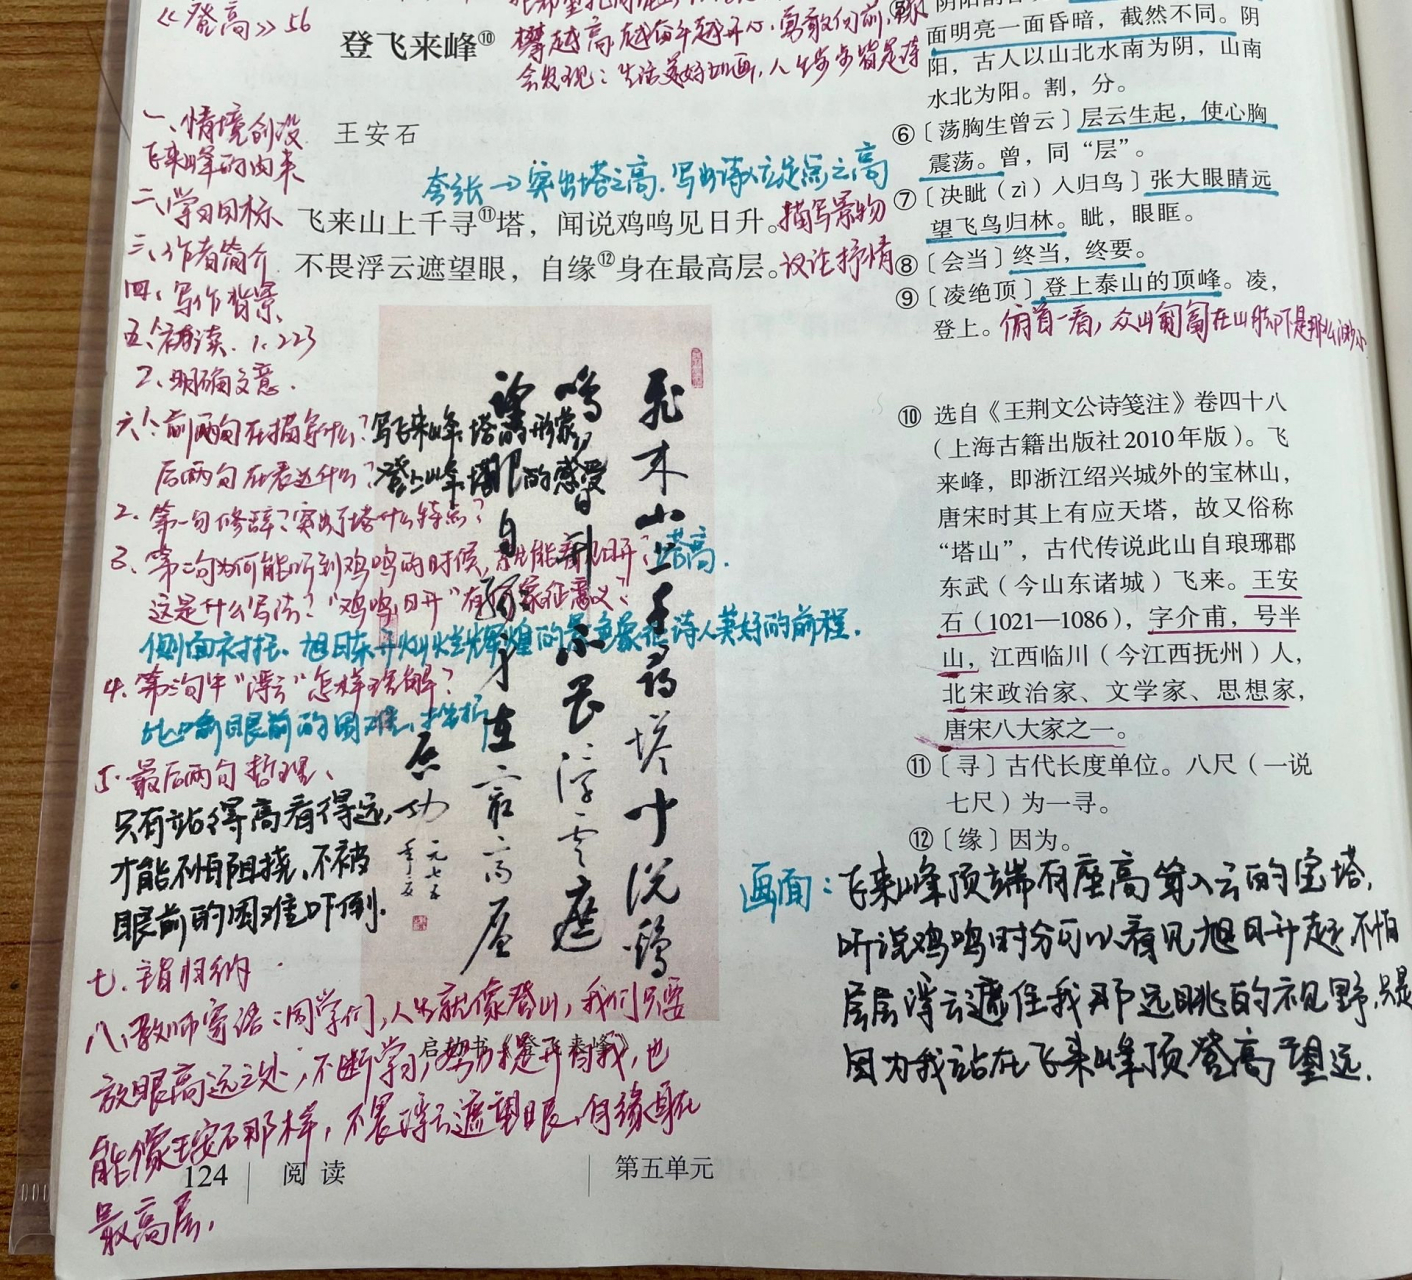 《登高》56
登飞来峰⑩
攀越高，越奋斗越开心，勇敢向前，
会发现：生活美好如画，人生步步皆是诗
王安石
夸张→突出塔之高，写出诗人立足点之高
飞来山上千寻⑪塔，闻说鸡鸣见日升。描写景物
不畏浮云遮望眼，自缘⑫身在最高层。议论抒情
一、情境创设
飞来峰的由来
二、学习目标
三、作者简介
四、写作背景
五、初读. 1. 223
2、明确文意.
六、1、前两句在描写什么？写飞来峰、塔的形象，
后两句在表达什么？登上山峰、塔的感受
2、第一句修辞？突出了塔什么特点？
3、第二句为何能听到鸡鸣的时候，就能看见日升？塔高.
这是什么写法？“鸡鸣日升”有何象征意义？
侧面衬托、旭日东升灿烂辉煌的景色象征诗人美好的前程.
4、第三句中“浮云”怎样理解？
比喻眼前的困难、挫折
5、最后两句哲理、
只有站得高看得远，
才能不怕阻挠，不被
眼前的困难吓倒.
七、主旨归纳
八、教师寄语：同学们，人生就像登山，我们只要
放眼高远之处，不断学习，努力提升自我，也
能像王安石那样，不畏浮云遮望眼，自缘身在
最高层.
飞来山上千寻塔 闻说鸡
鸣见日升 不畏浮云遮
望眼 自缘身在最高层
启功
一九七五
启功书《登飞来峰》
124 阅读 第五单元
面明亮一面昏暗，截然不同。阴
阳，古人以山北水南为阴，山南
水北为阳。割，分。
⑥〔荡胸生曾云〕层云生起，使心胸
震荡。曾，同“层”。
⑦〔决眦（zì）入归鸟〕张大眼睛远
望飞鸟归林。眦，眼眶。
⑧〔会当〕终当，终要。
⑨〔凌绝顶〕登上泰山的顶峰。凌，
登上。俯首一看，众山匍匐在山脚下是那么渺小
⑩ 选自《王荆文公诗笺注》卷四十八
（上海古籍出版社2010年版）。飞
来峰，即浙江绍兴城外的宝林山，
唐宋时其上有应天塔，故又俗称
“塔山”，古代传说此山自琅琊郡
东武（今山东诸城）飞来。王安
石（1021—1086），字介甫，号半
山，江西临川（今江西抚州）人，
北宋政治家、文学家、思想家，
唐宋八大家之一。
⑪〔寻〕古代长度单位。八尺（一说
七尺）为一寻。
⑫〔缘〕因为。
画面：飞来峰顶端有座高耸入云的宝塔，
听说鸡鸣时分可以看见旭日升起，不怕
层层浮云遮住我那远眺的视野，只是
因为我站在飞来峰顶登高望远.